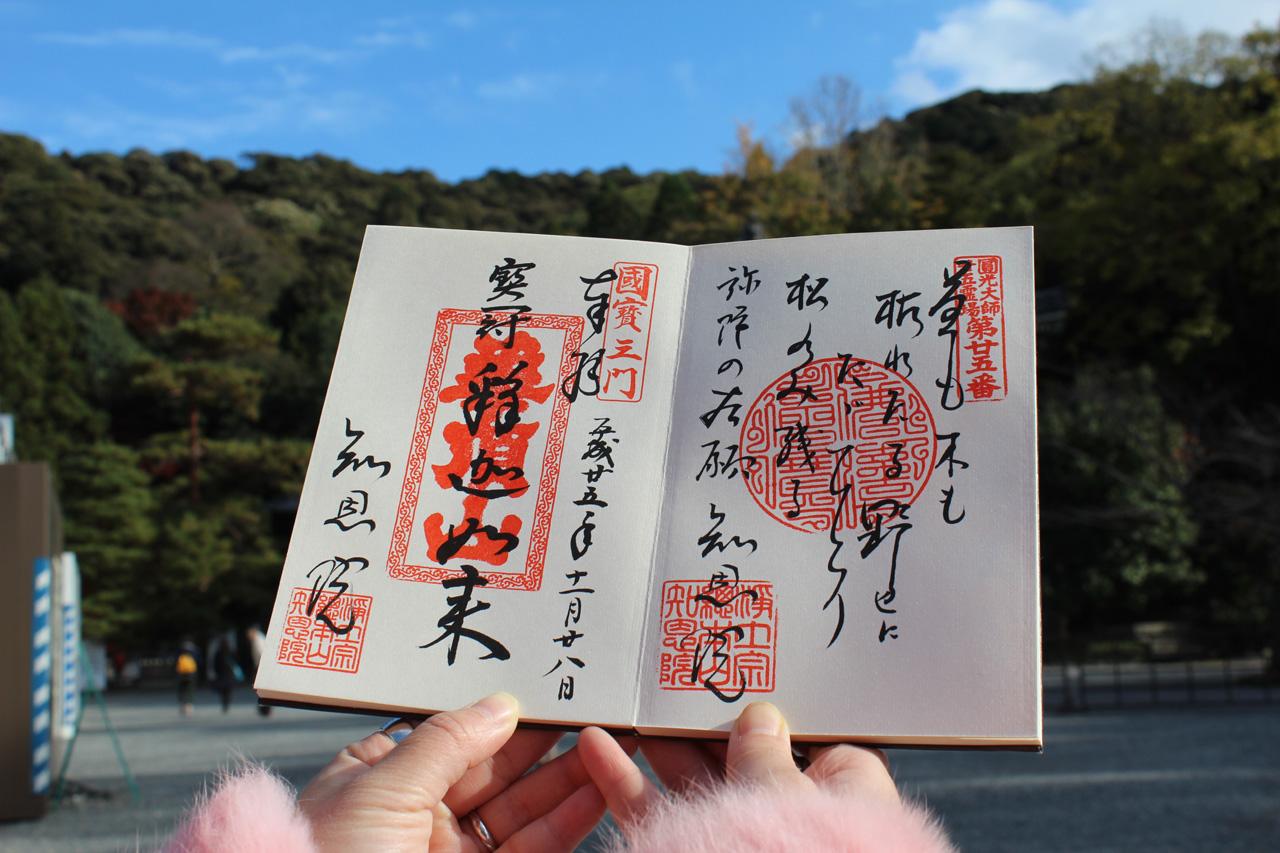 圓光大師
廿五霊場
第廿五番
草も木も
枯れたる野辺に
たゞひとり
松のみ残る
弥陀の本願
知恩院
淨土宗
總本山
知恩院
國寶三門
奉拝
平成廿五年十一月廿八日
寶冠釋迦如来
華頂山
知恩院
淨土宗
總本山
知恩院